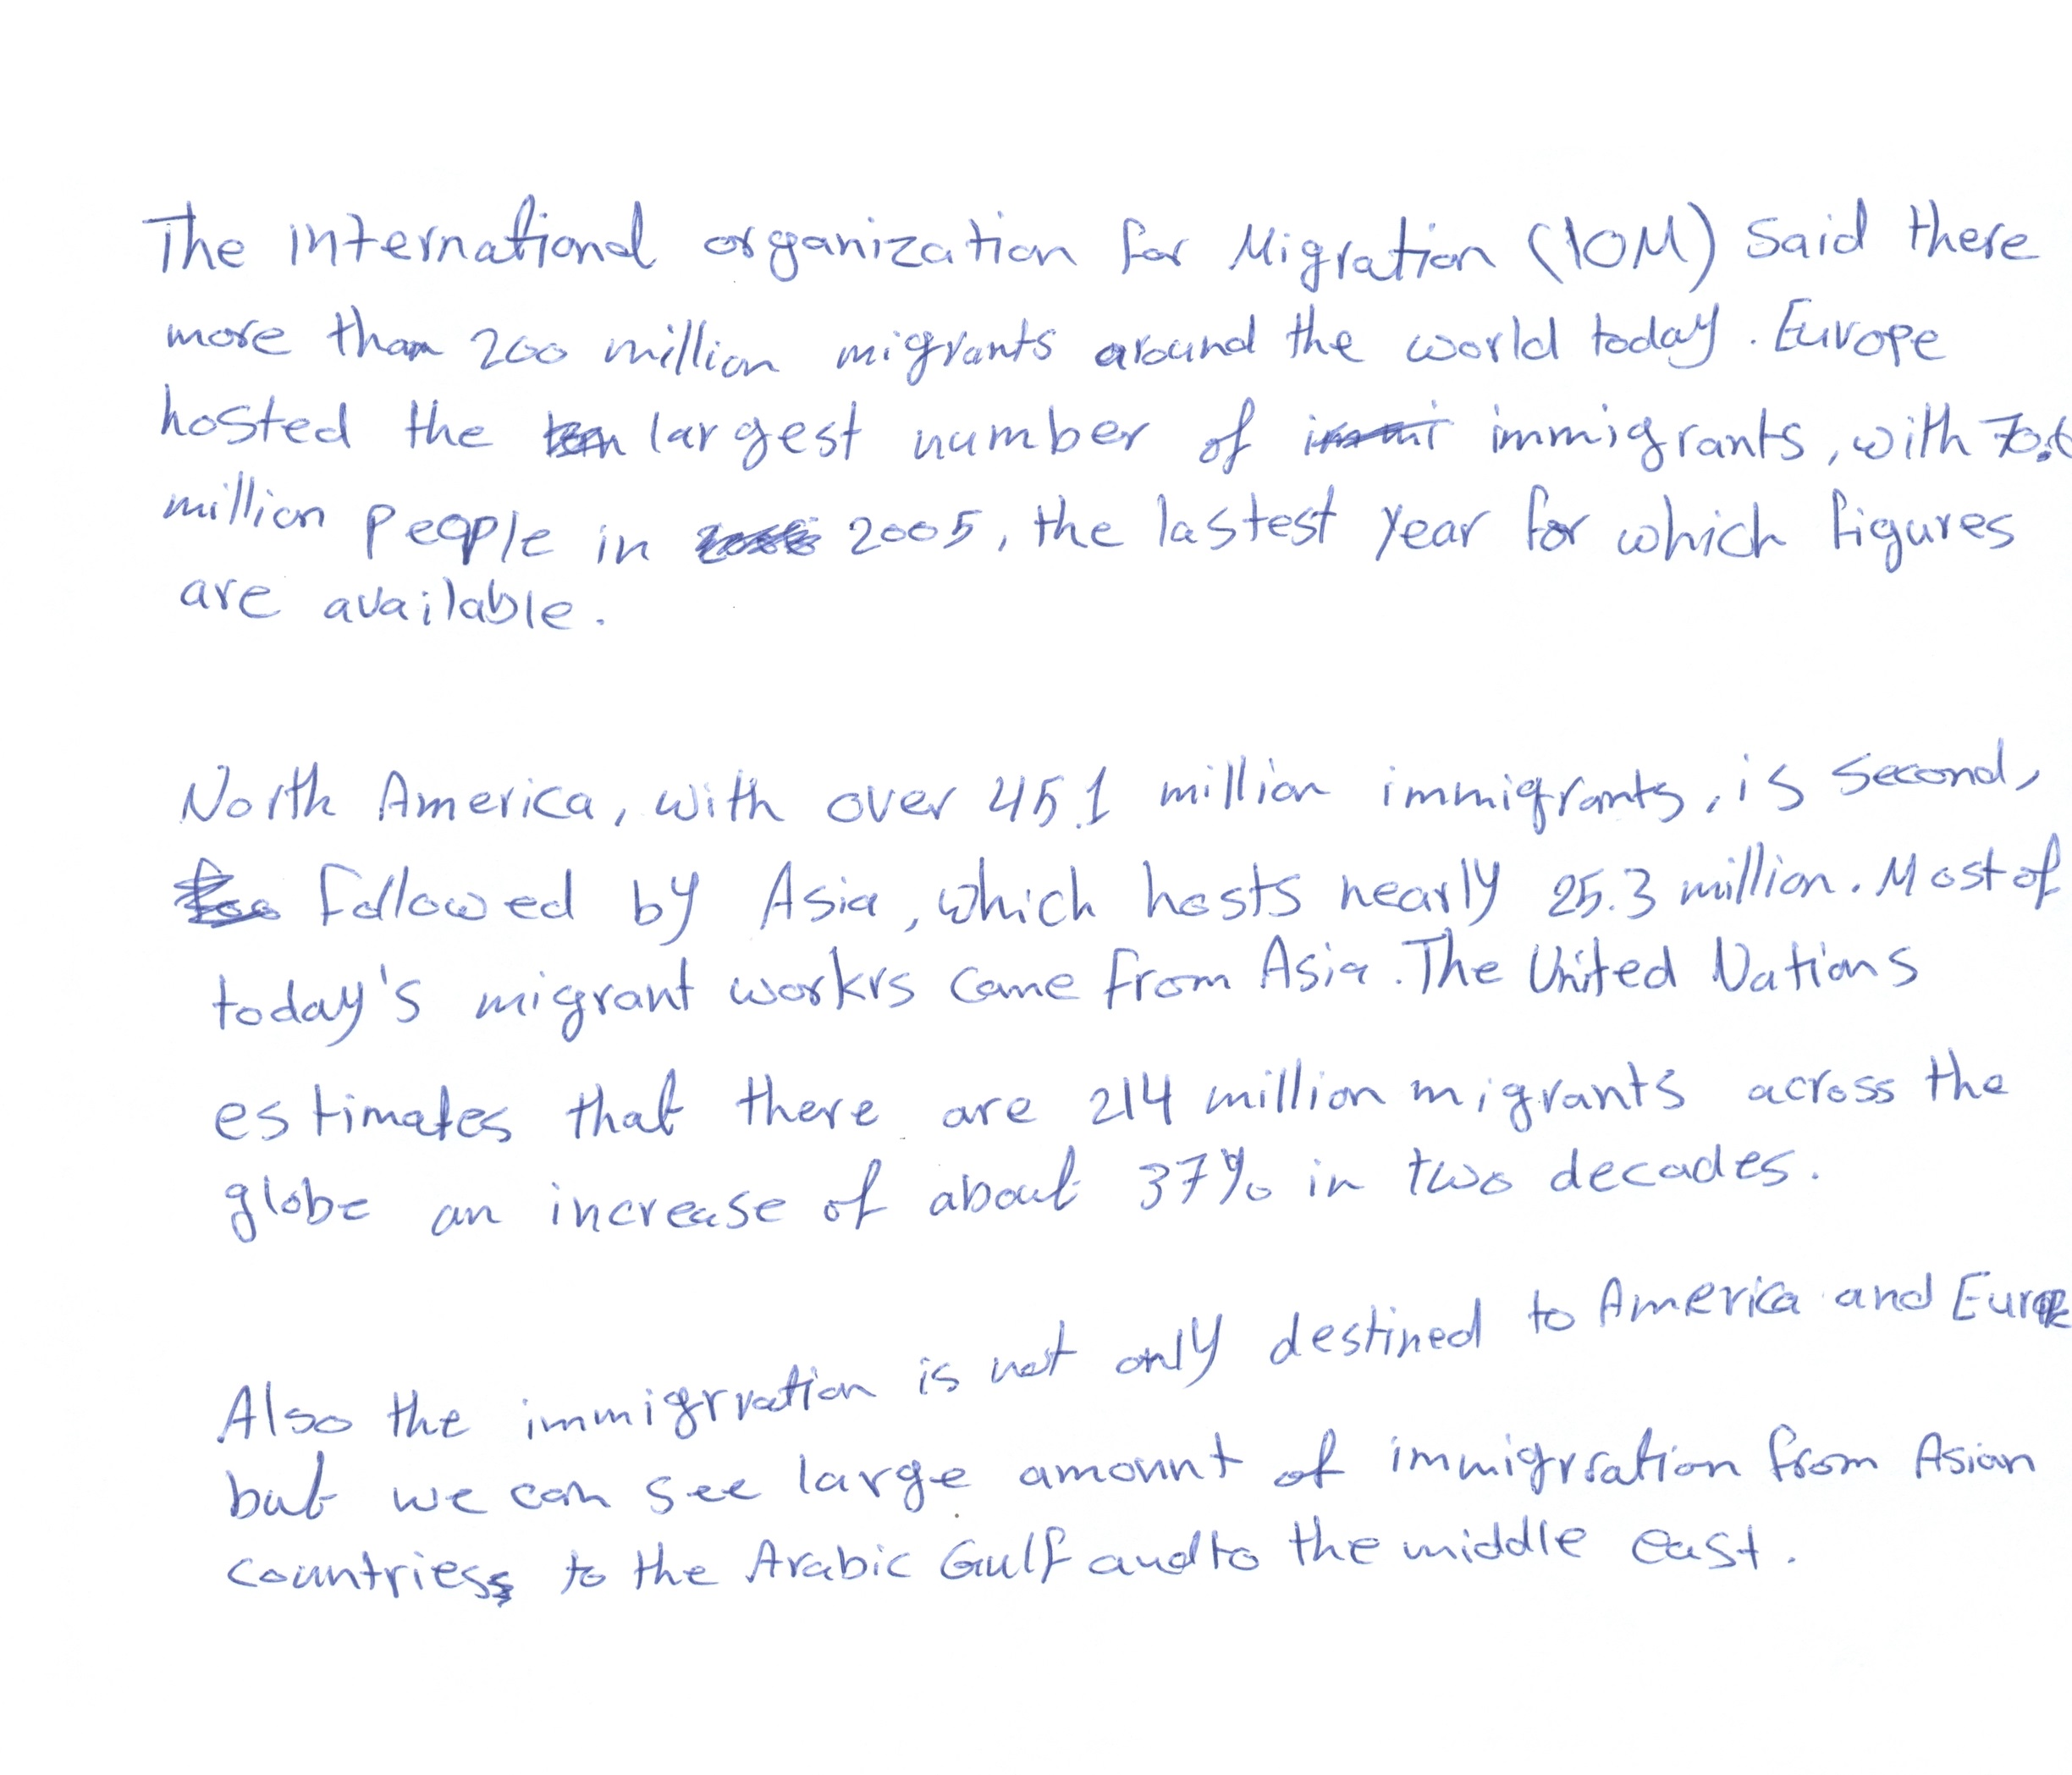 The international organization for Migration (IOM) said there
more than 200 million migrants around the world today. Europe
hosted the largest number of immigrants, with 70.6
million people in 2005, the lastest year for which figures
are available.
North America, with over 45.1 million immigrants, is second,
followed by Asia, which hosts nearly 25.3 million. Most of
today's migrant workrs came from Asia. The United Nations
estimates that there are 214 million migrants across the
globe an increase of about 37% in two decades.
Also the immigrration is not only destined to America and Europe
but we can see large amount of immigrration from Asian
countries to the Arabic Gulf and to the middle east.